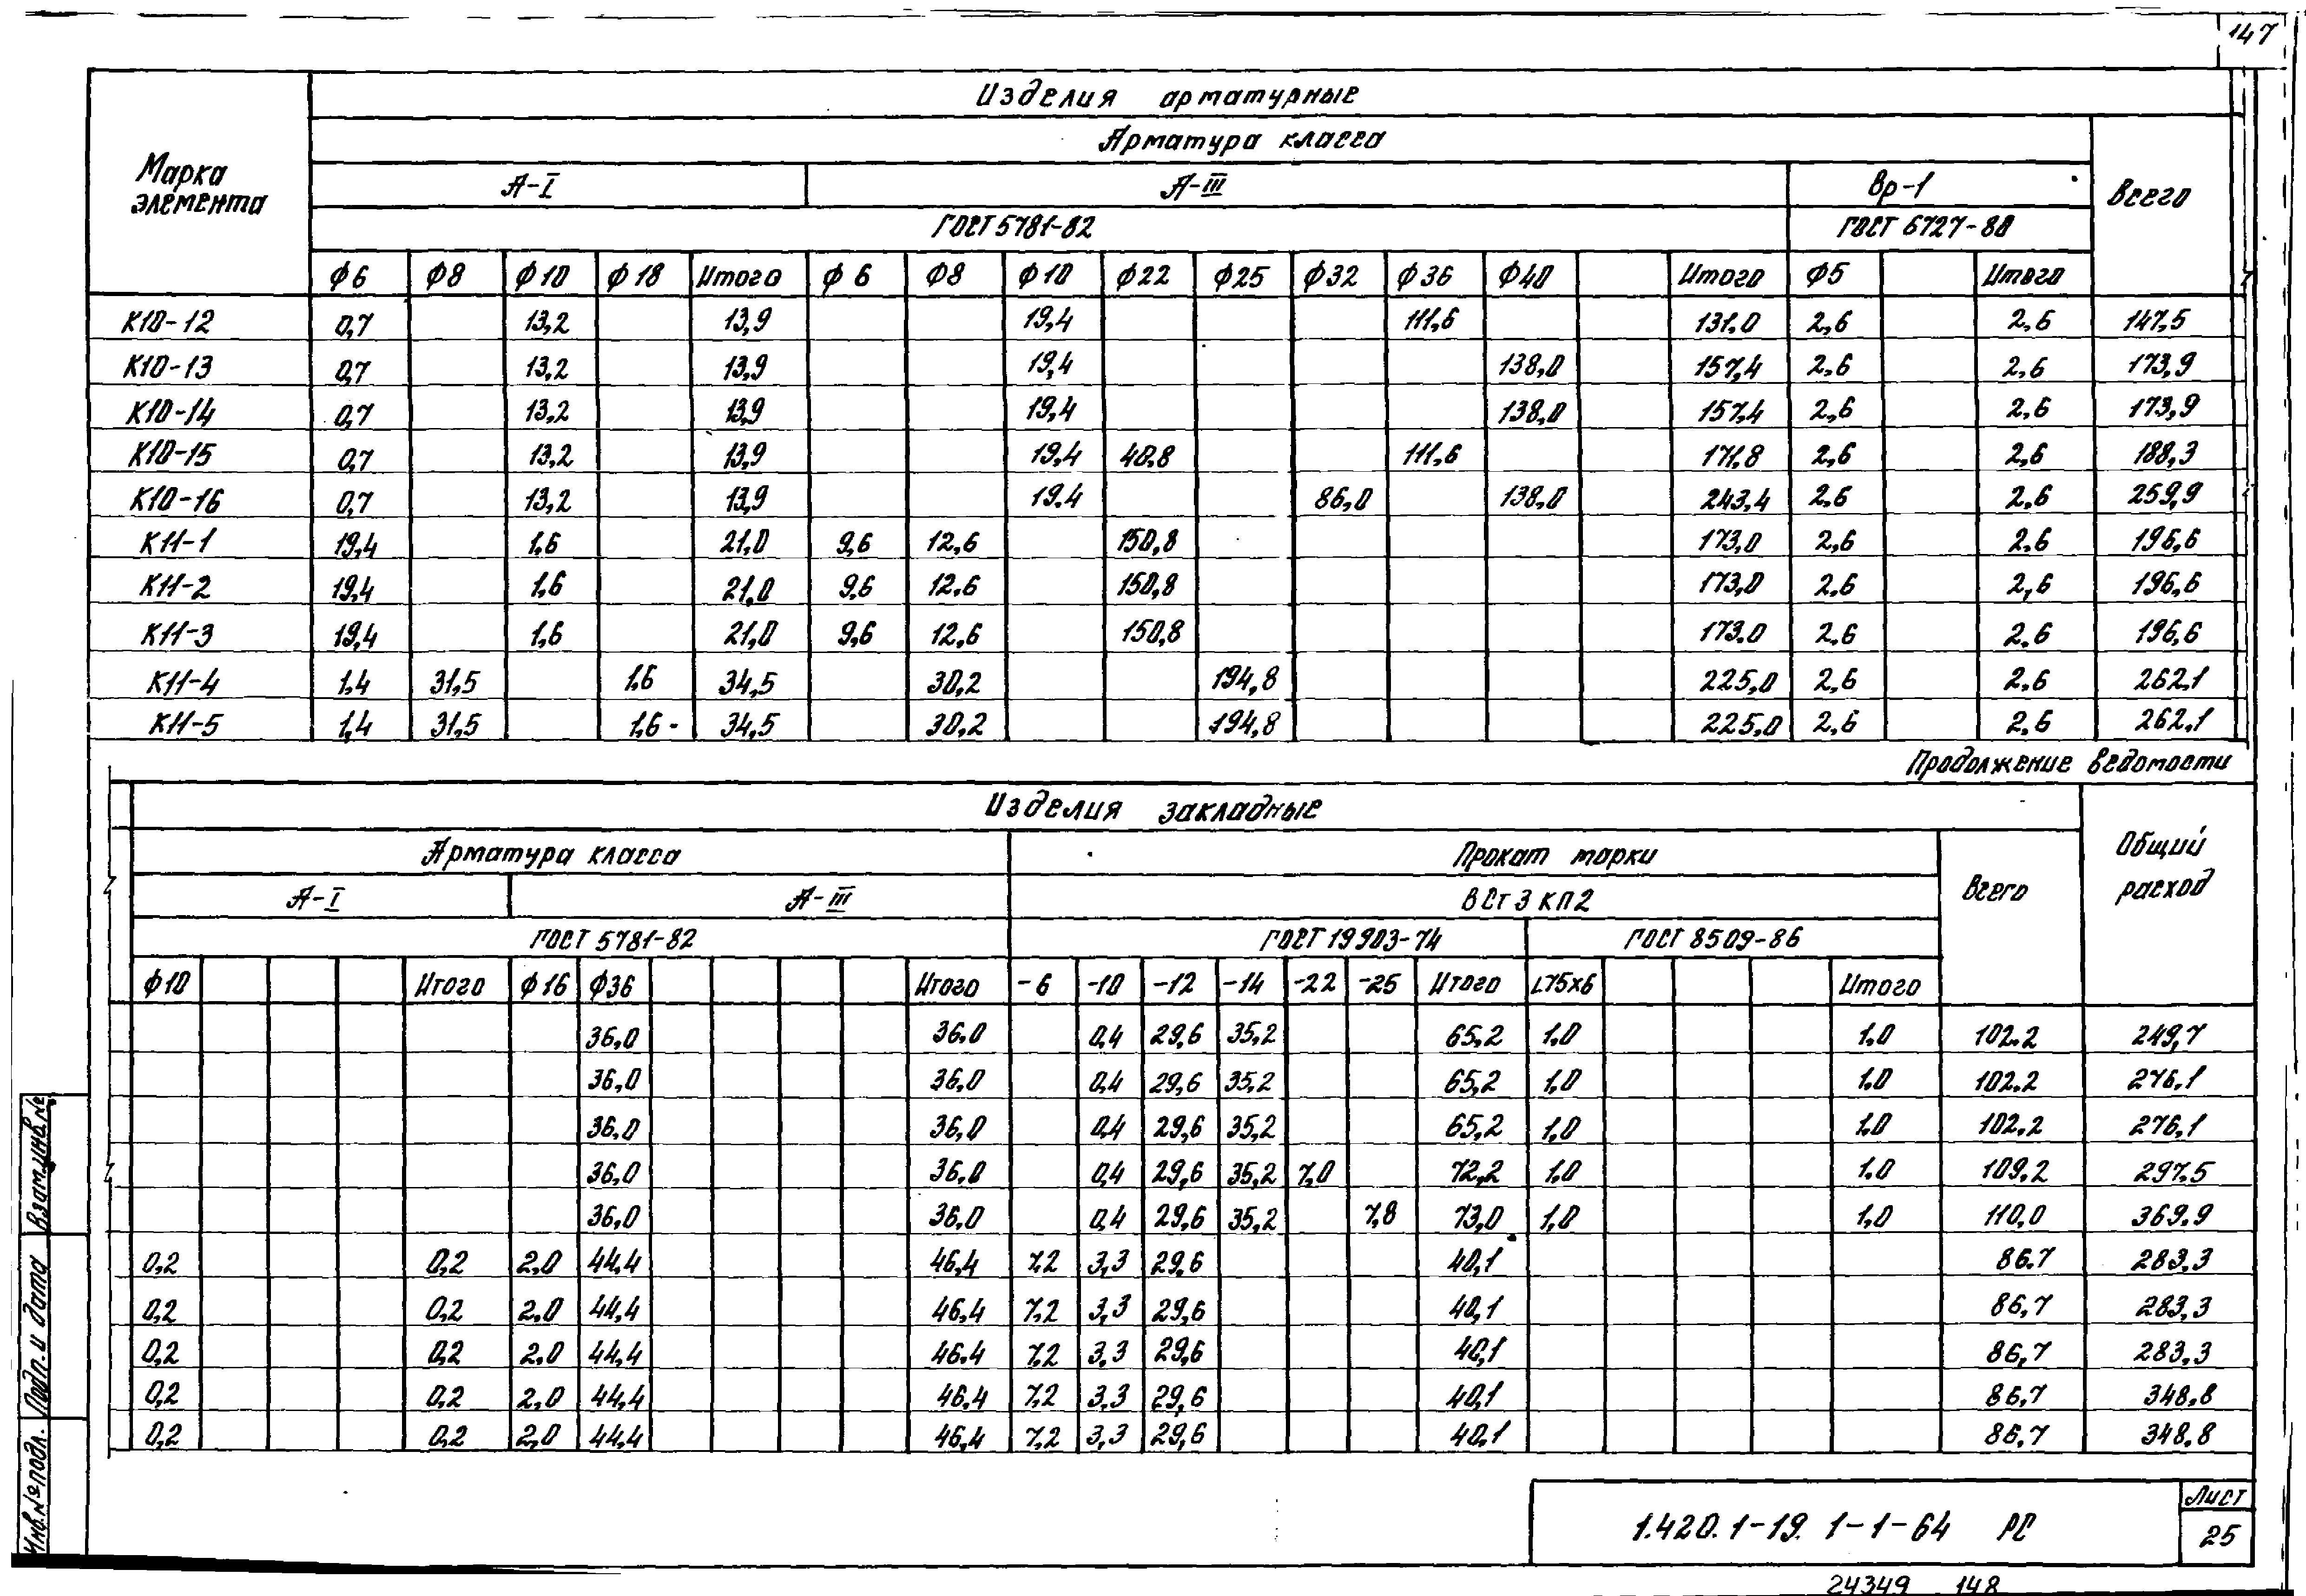 147
Изделия арматурные
Арматура класса
Марка элемента
А-I А-III Вр-1 Всего
ГОСТ 5781-82 ГОСТ 6727-80
ф6 ф8 ф10 ф18 Итого ф6 ф8 ф10 ф22 ф25 ф32 ф36 ф40 Итого ф5 Итого
К10-12 0,7 13,2 13,9 19,4 111,6 131,0 2,6 2,6 147,5
К10-13 0,7 13,2 13,9 19,4 138,0 157,4 2,6 2,6 173,9
К10-14 0,7 13,2 13,9 19,4 138,0 157,4 2,6 2,6 173,9
К10-15 0,7 13,2 13,9 19,4 40,8 111,6 171,8 2,6 2,6 188,3
К10-16 0,7 13,2 13,9 19,4 86,0 138,0 243,4 2,6 2,6 259,9
К11-1 19,4 1,6 21,0 9,6 12,6 150,8 173,0 2,6 2,6 196,6
К11-2 19,4 1,6 21,0 9,6 12,6 150,8 173,0 2,6 2,6 196,6
К11-3 19,4 1,6 21,0 9,6 12,6 150,8 173,0 2,6 2,6 196,6
К11-4 1,4 31,5 1,6 34,5 30,2 194,8 225,0 2,6 2,6 262,1
К11-5 1,4 31,5 1,6 34,5 30,2 194,8 225,0 2,6 2,6 262,1
Продолжение ведомости
Изделия закладные
Арматура класса Прокат марки Общий расход
А-I А-III ВСт 3 кп2 Всего
ГОСТ 5781-82 ГОСТ 19903-74 ГОСТ 8509-86
ф10 Итого ф16 ф36 Итого -6 -10 -12 -14 -22 -25 Итого L75х6 Итого
36,0 36,0 0,4 29,6 35,2 65,2 1,0 1,0 102,2 249,7
36,0 36,0 0,4 29,6 35,2 65,2 1,0 1,0 102,2 276,1
36,0 36,0 0,4 29,6 35,2 65,2 1,0 1,0 102,2 276,1
36,0 36,0 0,4 29,6 35,2 7,0 72,2 1,0 1,0 109,2 297,5
36,0 36,0 0,4 29,6 35,2 7,8 73,0 1,0 1,0 110,0 369,9
0,2 0,2 2,0 44,4 46,4 7,2 3,3 29,6 40,1 86,7 283,3
0,2 0,2 2,0 44,4 46,4 7,2 3,3 29,6 40,1 86,7 283,3
0,2 0,2 2,0 44,4 46,4 7,2 3,3 29,6 40,1 86,7 283,3
0,2 0,2 2,0 44,4 46,4 7,2 3,3 29,6 40,1 86,7 348,8
0,2 0,2 2,0 44,4 46,4 7,2 3,3 29,6 40,1 86,7 348,8
Взам.инв.№
Подп. и дата
Инв.№подл.
1.420.1-19. 1-1-64 РС
Лист
25
24349 148